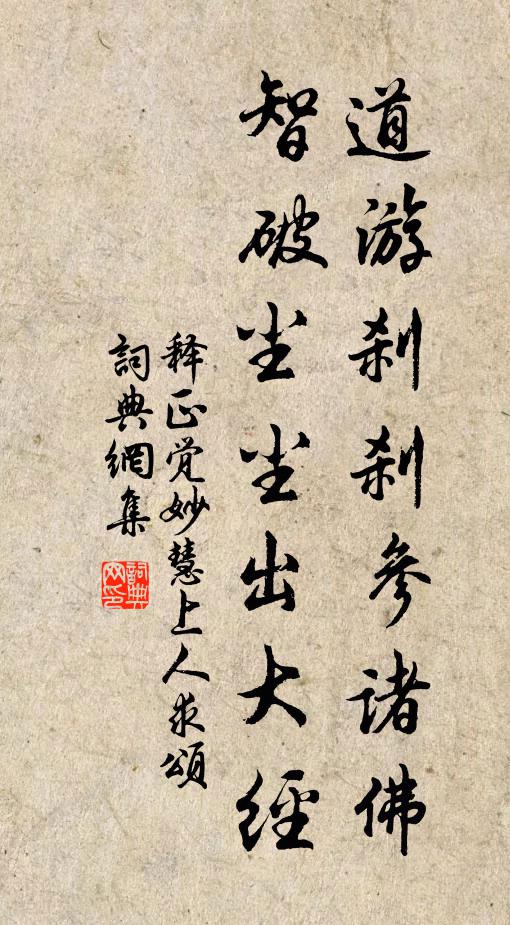 道游刹刹參諸佛
智破尘尘出大經
释正觉妙慧上人求頌
詞典網集
詞典网印